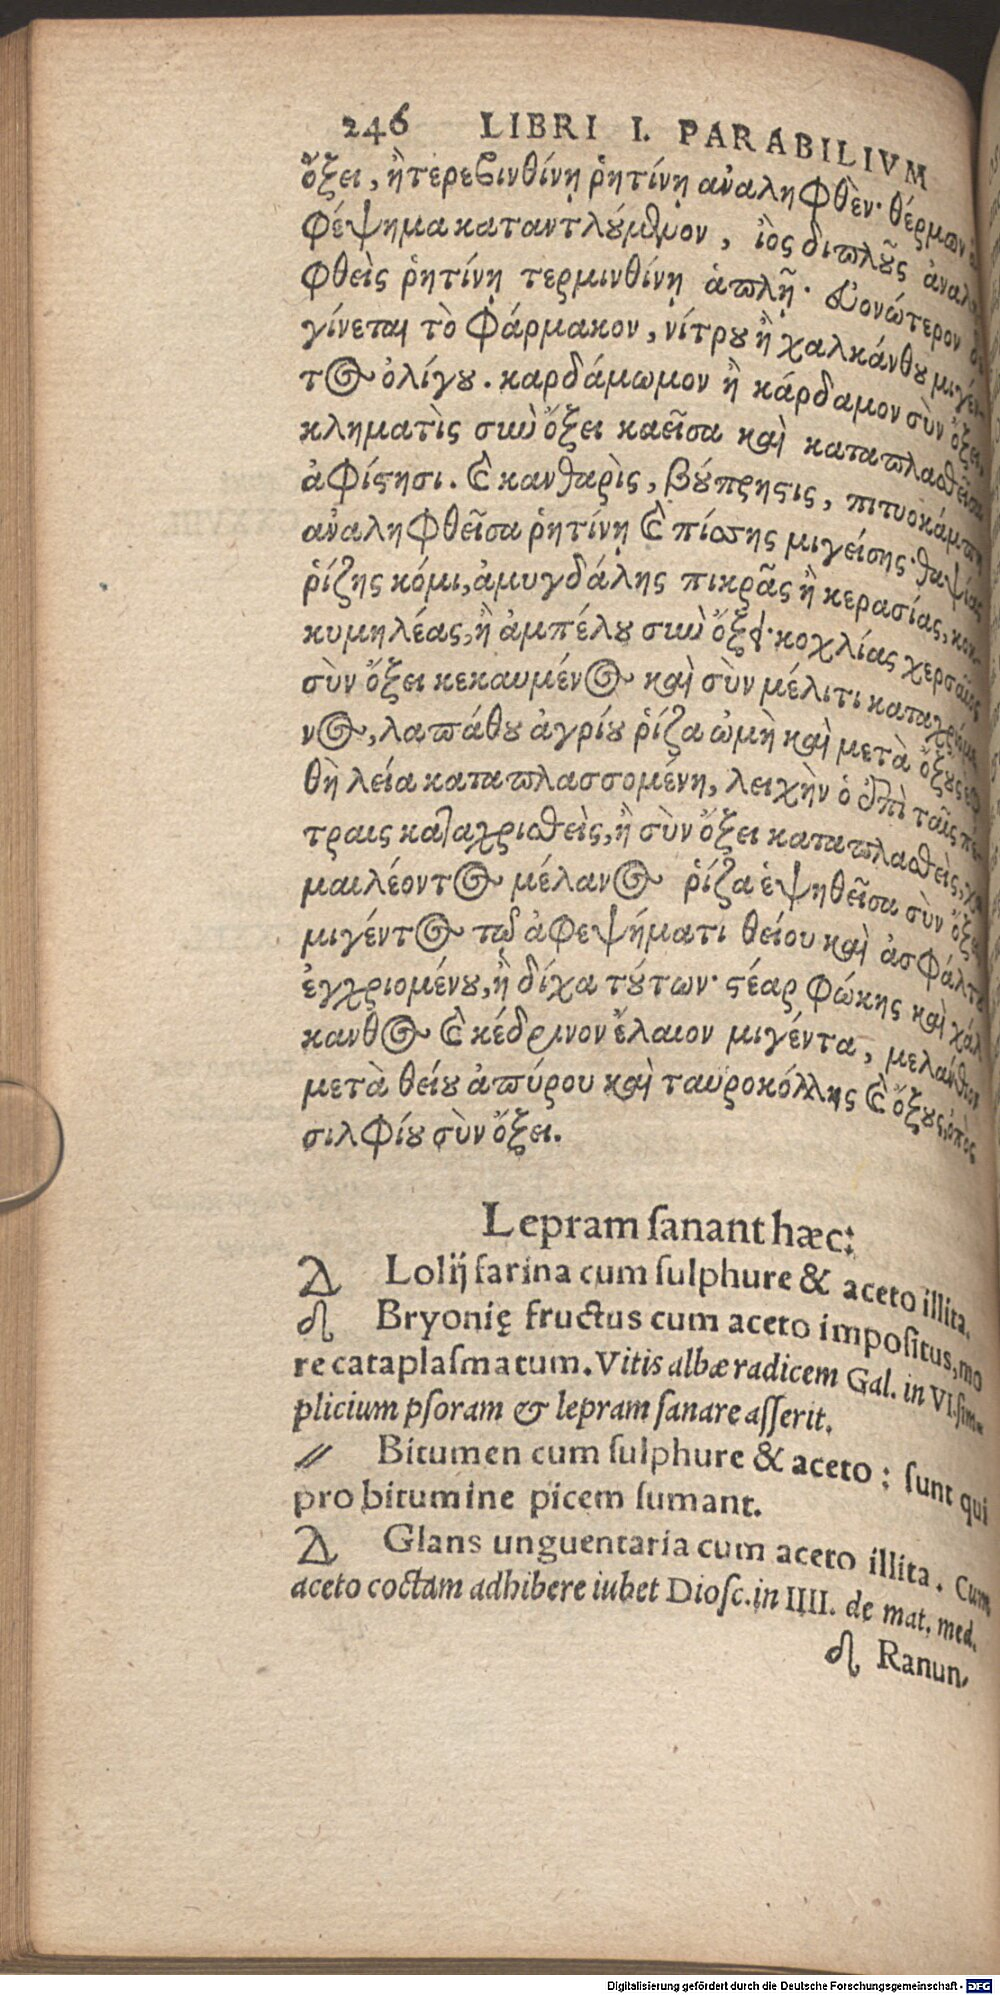 246 LIBRI I. PARABILIVM
ὄξει, ἢ τερεβινθίνῃ ῥητίνῃ ἀναληφθέν· θέρμων
φέψημα καταντλούμενον, ἰὸς διπλοῦς ἀναλη
φθεὶς ῥητίνῃ τερμινθίνῃ ἁπλῇ· εὐτονώτερον
γίνεται τὸ φάρμακον, νίτρου ἢ χαλκάνθου μιγέν-
τος ὀλίγου. καρδάμωμον ἢ κάρδαμον σὺν ὄξει,
κληματὶς σὺν ὄξει καεῖσα καὶ καταπλασθεῖσα
ἀφίστησι. καὶ κανθαρὶς, βούπρηστις, πιτυοκάμπη
ἀναληφθεῖσα ῥητίνῃ καὶ πίσσης μιγείσης. θαψίας
ῥίζης κόμι, ἀμυγδάλης πικρᾶς ἢ κερασίας, κοκ-
κυμηλέας, ἢ ἀμπέλου σὺν ὄξει· κοχλίας χερσαῖος
σὺν ὄξει κεκαυμένος καὶ σὺν μέλιτι καταχριόμε
νος, λαπάθου ἀγρίου ῥίζα ὠμὴ καὶ μετὰ ὄξους ἑφ
θὴ λεία καταπλασσομένη, λειχὴν ὁ ἐπὶ ταῖς πέ-
τραις καταχρισθεὶς, ἢ σὺν ὄξει καταπλασθεὶς, χα
μαιλέοντος μέλανος ῥίζα ἑψηθεῖσα σὺν ὄξει
μιγέντος τῷ ἀφεψήματι θείου καὶ ἀσφάλτου
ἐγχριομένου, ἢ δίχα τούτων· στέαρ φώκης καὶ χάλ
κανθος καὶ κέδρινον ἔλαιον μιγέντα, μελάνθιον
μετὰ θείου ἀπύρου καὶ ταυροκόλλης καὶ ὄξους, ὀπὸς
σιλφίου σὺν ὄξει.
Lepram sanant hæc:
Lolij farina cum sulphure & aceto illita.
Bryonię fructus cum aceto impositus, mo
re cataplasmatum. Vitis albæ radicem Gal. in VI. sim-
plicium psoram & lepram sanare asserit.
Bitumen cum sulphure & aceto: sunt qui
pro bitumine picem sumant.
Glans unguentaria cum aceto illita. Cum
aceto coctam adhibere iubet Diosc. in IIII. de mat. med.
Ranun-
Digitalisierung gefördert durch die Deutsche Forschungsgemeinschaft - DFG